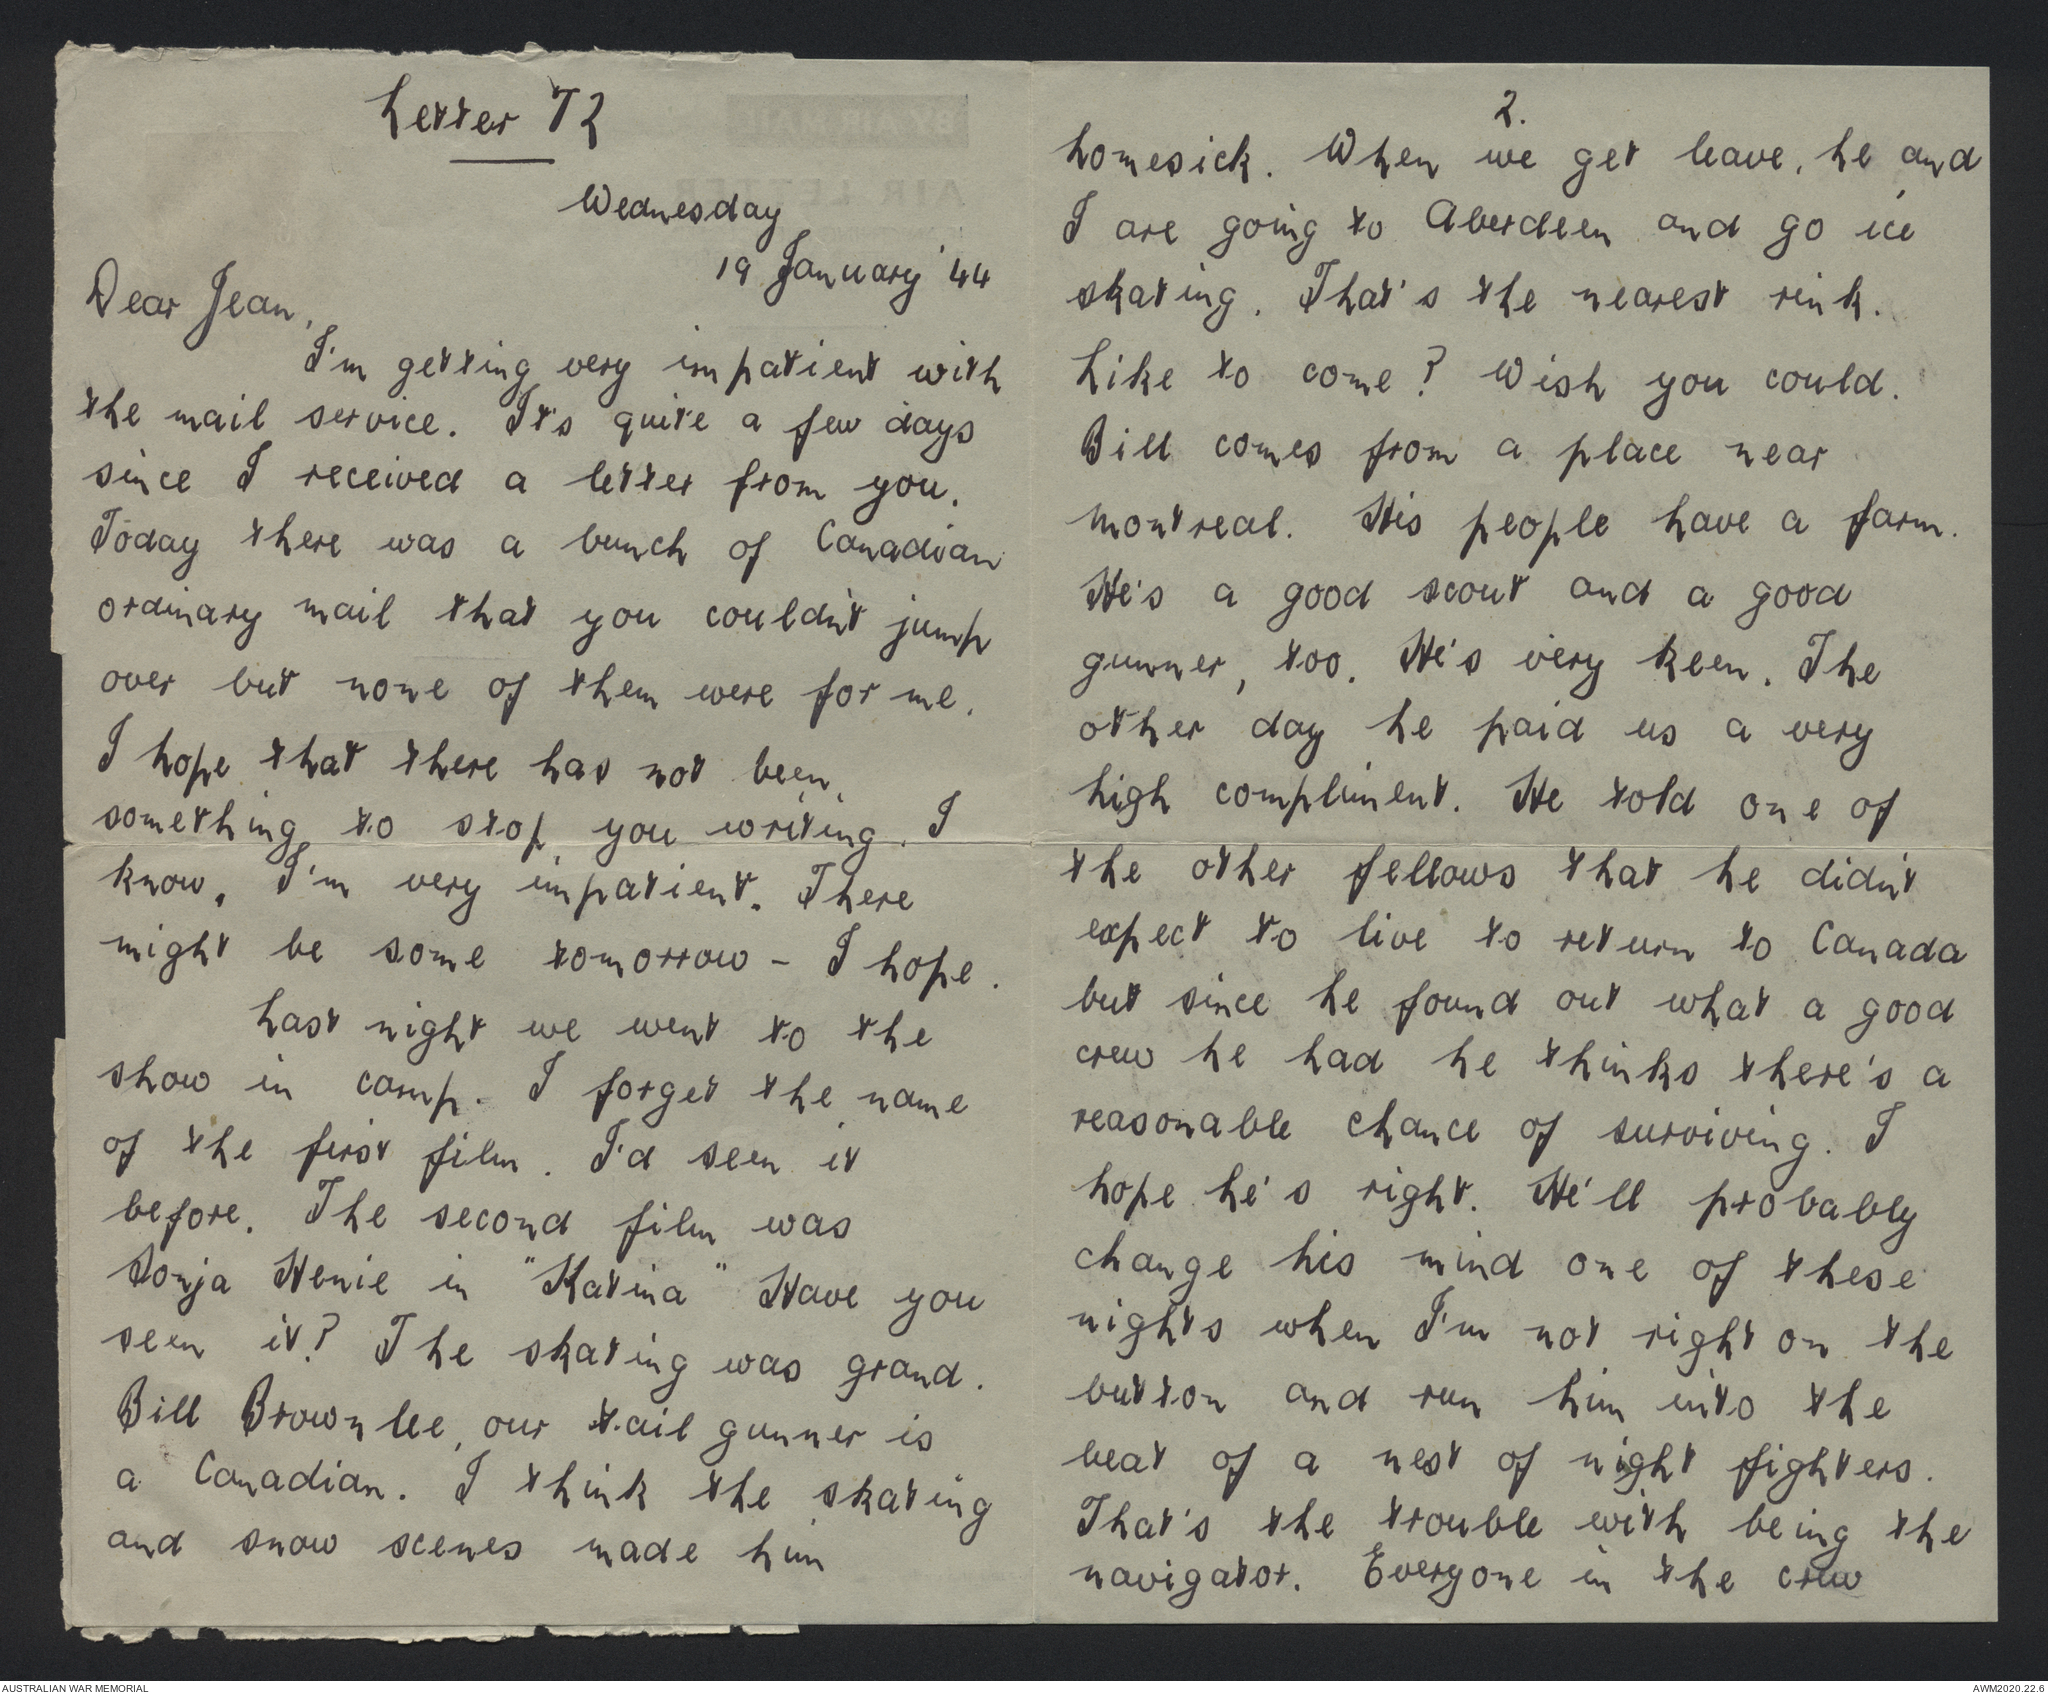 Letter 72
Wednesday
19 January '44
Dear Jean,
I'm getting very impatient with
the mail service. It's quite a few days
since I received a letter from you.
Today there was a bunch of Canadian
ordinary mail that you couldn't jump
over but none of them were for me.
I hope that there has not been
something to stop you writing. I
know, I'm very impatient. There
might be some tomorrow - I hope.
Last night we went to the
show in camp. I forget the name
of the first film. I'd seen it
before. The second film was
Sonja Henie in "Katina" Have you
seen it? The skating was grand.
Bill Brownlee, our tail gunner is
a Canadian. I think the skating
and snow scenes made him
2.
homesick. When we get leave, he and
I are going to Aberdeen and go ice
skating. That's the nearest rink.
Like to come? Wish you could.
Bill comes from a place near
Montreal. His people have a farm.
He's a good scout and a good
gunner, too. He's very keen. The
other day he paid us a very
high compliment. He told one of
the other fellows that he didn't
expect to live to return to Canada
but since he found out what a good
crew he had he thinks there's a
reasonable chance of surviving. I
hope he's right. He'll probably
change his mind one of these
nights when I'm not right on the
button and run him into the
beat of a nest of night fighters.
That's the trouble with being the
navigator. Everyone in the crew
AIR LETTER
AUSTRALIAN WAR MEMORIAL
AWM2020.22.6